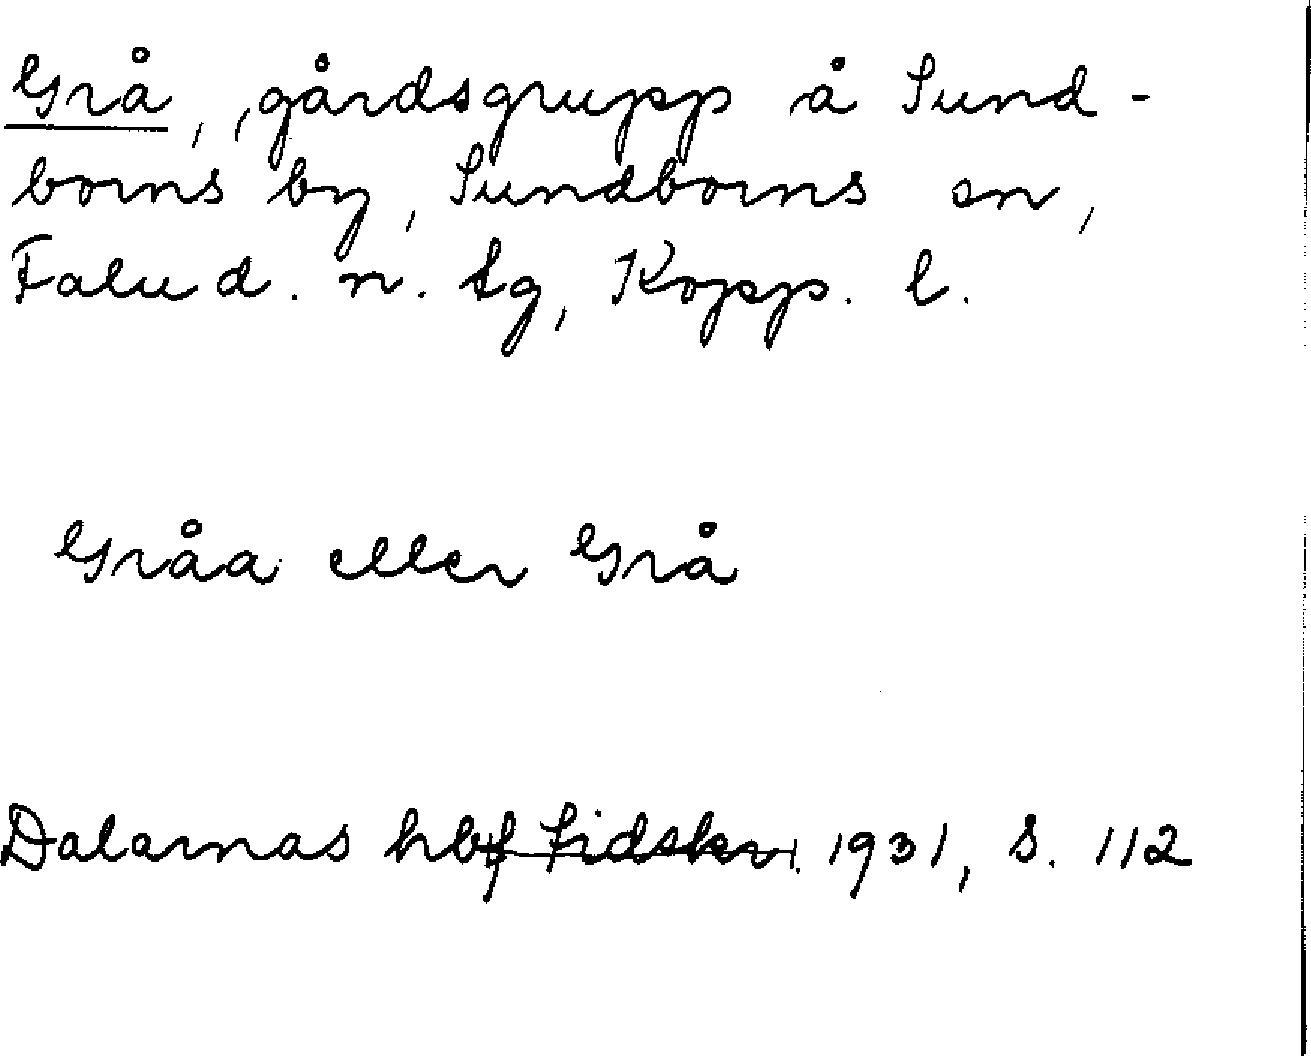 Grå, gårdsgrupp å Sund-
borns by, Sundborns sn,
Falu d. n. tg, Kopp. l.
Gråa eller Grå
Dalarnas hbf Tidskr. 1931, s. 112